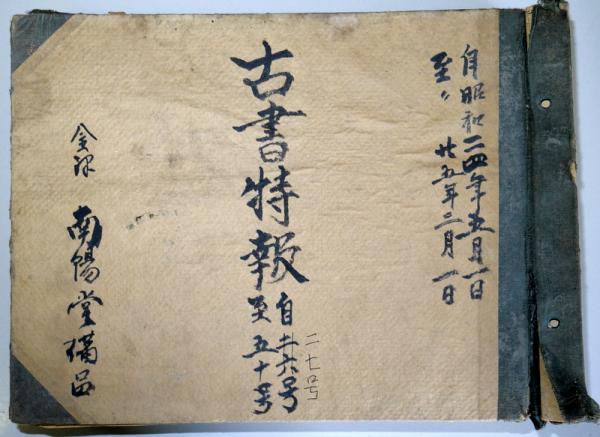 自昭和二四年五月一日
至〃廿五年三月一日
古書特報
自廿六号
二七号
至五十号
金沢
南陽堂備品